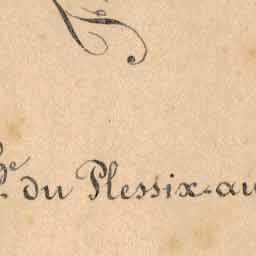 du Plessix-au